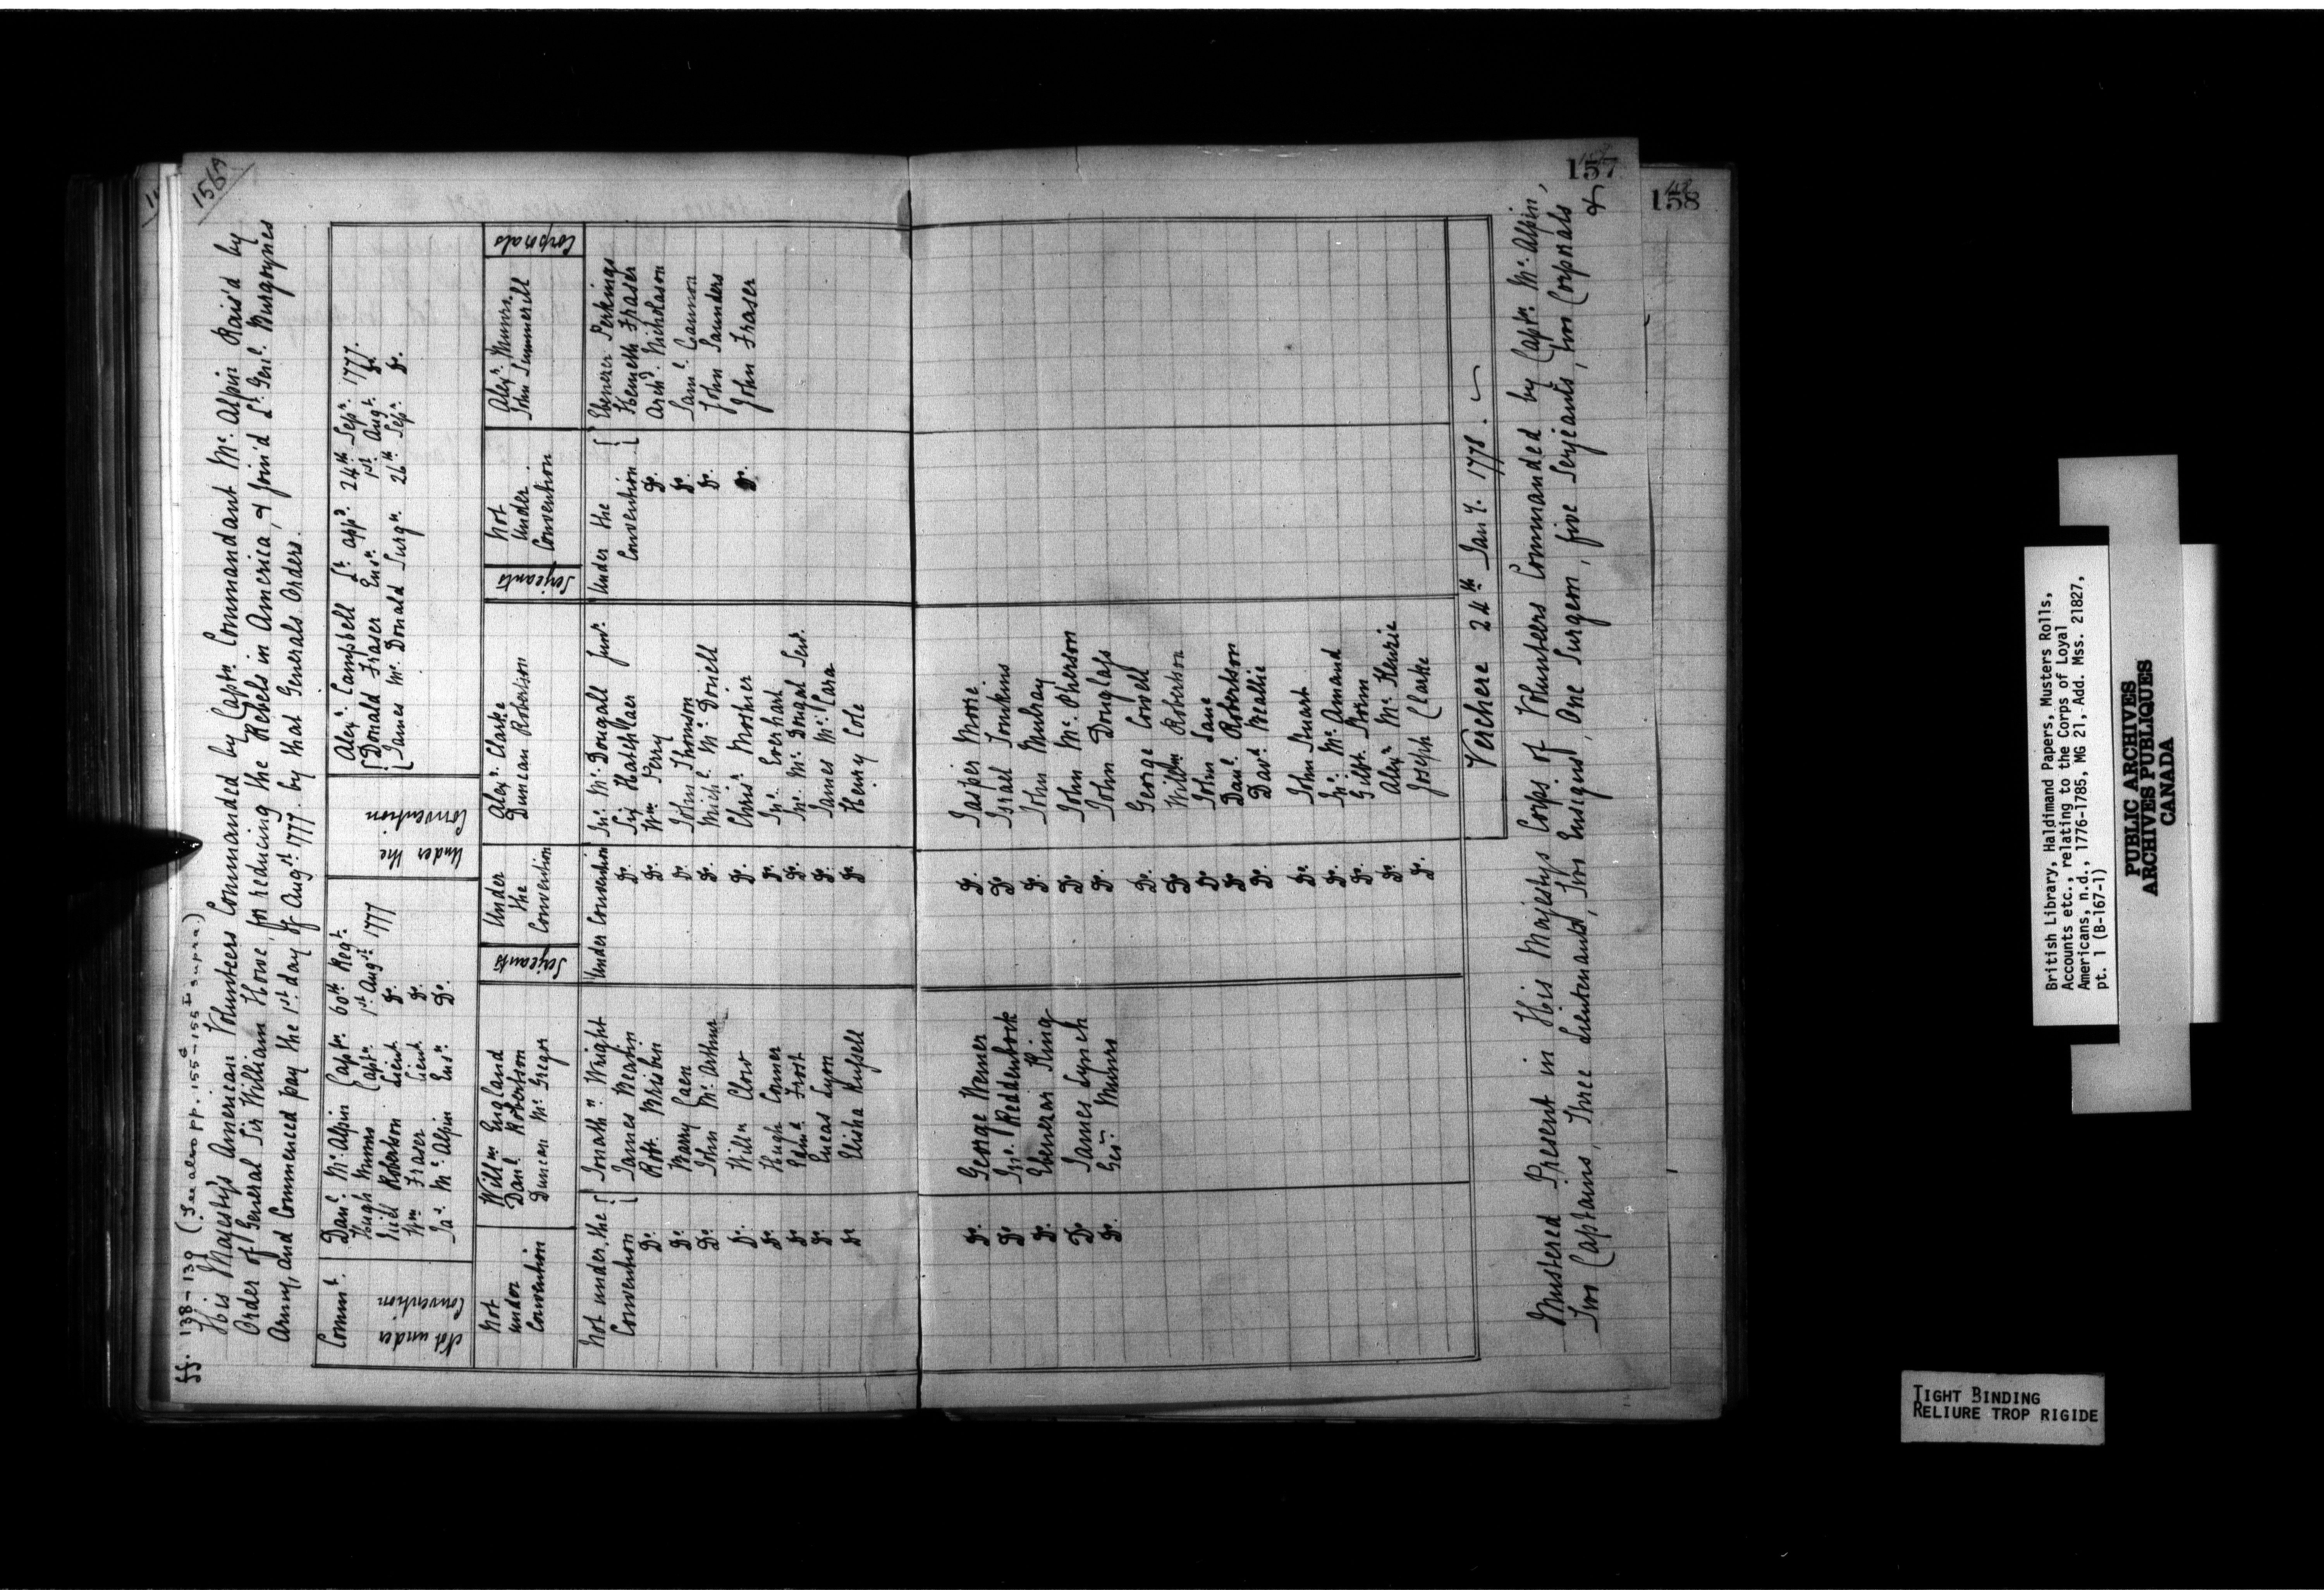 156A
ff. 138-139 (See also pp. 155-155 supra.)
His Majesty's American Volunteers Commanded by Captn Commandant Mc Alpin Rais'd by
Order of General Sir William Howe, for reducing the Rebels in America, & Join'd Lt Genl. Burgoynes
Army, and Commenced pay the 1st day of Augst 1777. by that Generals Orders.
Commt.
Not under Convention
Danl Mc Alpin Captn. 60th Regt.
Hugh Munro Captn. 1st Augst 1777
Niel Robertson Lieut. Do.
Wm Fraser Lieut. Do.
Jas. Mc Alpin Ensn. Do.
Under the Convention
Alexr. Campbell Lt. appd. 24th Sepr. 1777.
Donald Fraser Ensn. 1st Augt. Do.
James Mc Donald Surgn. 26th Sepr. Do.
Not under Convention
Willm England
Danl. Robertson
Duncan Mc Gregor
Serjeants
Under the Convention
Alexr. Clarke
Duncan Robertson
Serjeants
Not Under Convention
Alexr. Munro.
John Summerill
Corporals
Not under the Convention
Jonathn Wright
James Beatin
Do. Robt. Brisbin
Do. Barry Caen
Do. John Mc Arthur
Do. Willm Clow
Do. Hugh Conner
Do. Edmd. Frost
Do. Eneas Lyon
Do. Elisha Russell
Under Convention Jno. Mc Dougall Junr.
Do. Six Haselhaer
Do. Wm Perry
Do. John Thomson
Do. Michl. Mc Donell
Do. Chrisr. Mothier
Do. Jno. Everhart
Do. Jno. Mc Dougal Senr.
Do. James Mc Cara
Do. Henry Cole
Under the Convention
Ebenezer Perkings
Kenneth Fraser
Do. Archd. Nicholason
Do. Saml. Cannon
Do. John Saunders
Do. John Fraser
Do. George Wemer
Do. Jno. Reddenbock
Do. Ebenezar King
Do. James Lynch
Do. Geo. Munro
Do. Jasper Moore
Do. Israel Tomkins
Do. John Munray
Do. John Mc Pherson
Do. John Douglass
Do. George Cowell
Do. Willm Robertson
Do. John Lane
Do. Danl. Robertson
Do. Davd. Beallie
Do. John Stuart
Do. Jno. Mc Armand
Do. Gilbt. Storm
Do. Alexr Mc Kenzie
Do. Joseph Clarke
Verchere 24th Jany. 1778.
Mustered Present in His Majestys Corps of Volunteers Commanded by Captn. Mc Alpin,
Two Captains, Three Lieutenants, Two Ensigns, One Surgeon, five Serjeants, two Corporals
&
157
158
British Library, Haldimand Papers, Musters Rolls,
Accounts etc., relating to the Corps of Loyal
Americans, n.d., 1776-1785, MG 21, Add. Mss. 21827,
pt. 1 (B-167-1)
PUBLIC ARCHIVES
ARCHIVES PUBLIQUES
CANADA
TIGHT BINDING
RELIURE TROP RIGIDE